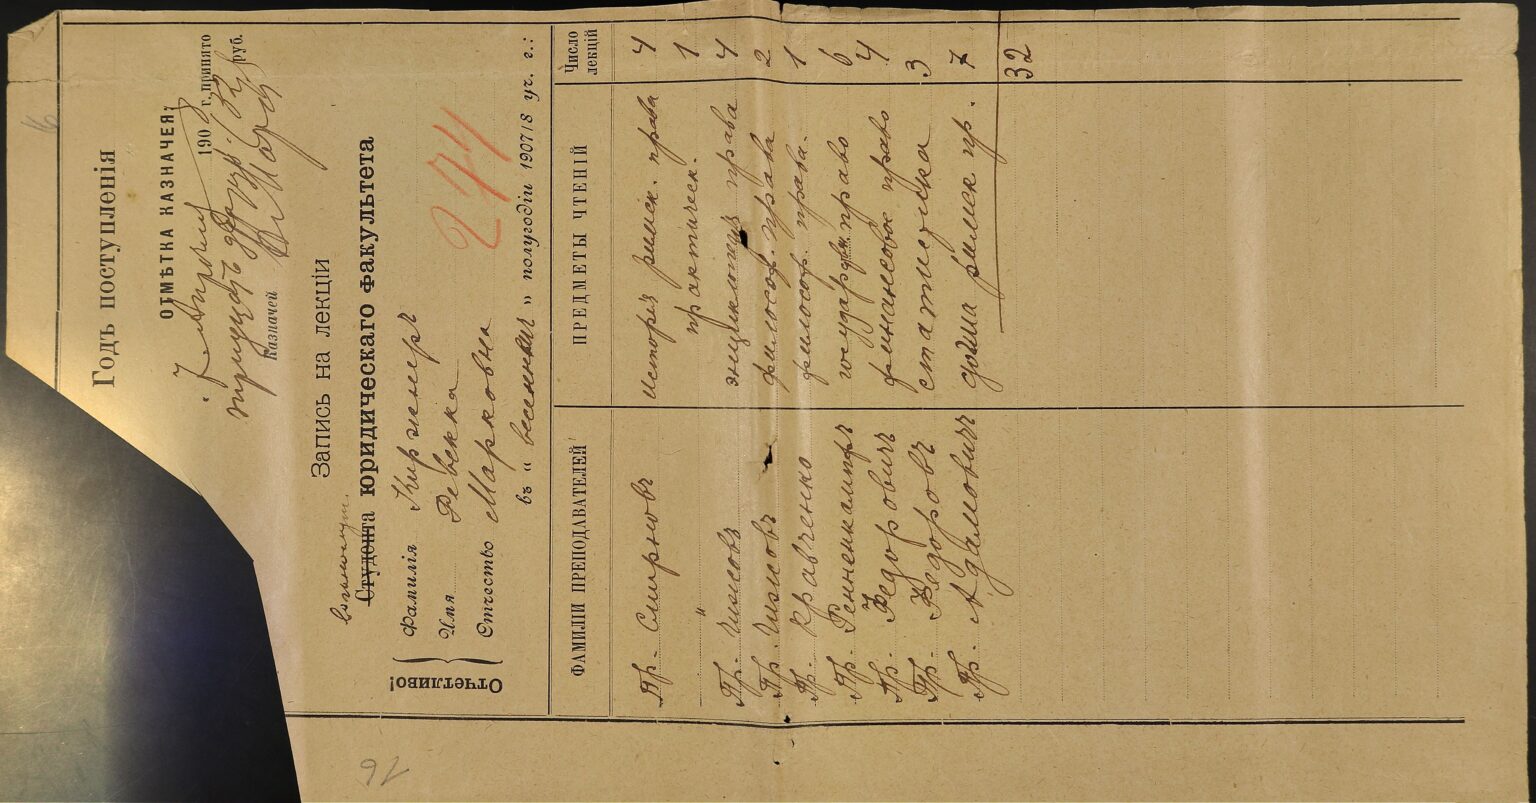 Годъ поступленія
ОТМѢТКА КАЗНАЧЕЯ:
7 Апрѣля 1908 г. принято
тридцать два руб. /32
Казначей
Запись на лекціи
вольнослуш.
Студента юридическаго факультета
Отчетливо!
Фамилія Киржнеръ
Имя Ревекка
Отчество Марковна
274
въ „весеннемъ" полугодіи 1907/8 уч. г.:
ФАМИЛІИ ПРЕПОДАВАТЕЛЕЙ ПРЕДМЕТЫ ЧТЕНІЙ Число лекцій
Пр. Смирновъ исторія римск. права 4
" практическ. 1
Пр. Чижовъ энциклопедія права 4
Пр. Чижовъ философ. права 2
Пр. Кравченко философ. права. 1
Пр. Ренненкампфъ государствен. право 6
Пр. Федоровичъ финансовое право 4
Пр. Федоровъ статистика 3
Пр. Адамовичъ догма римск пр. 7
32
16